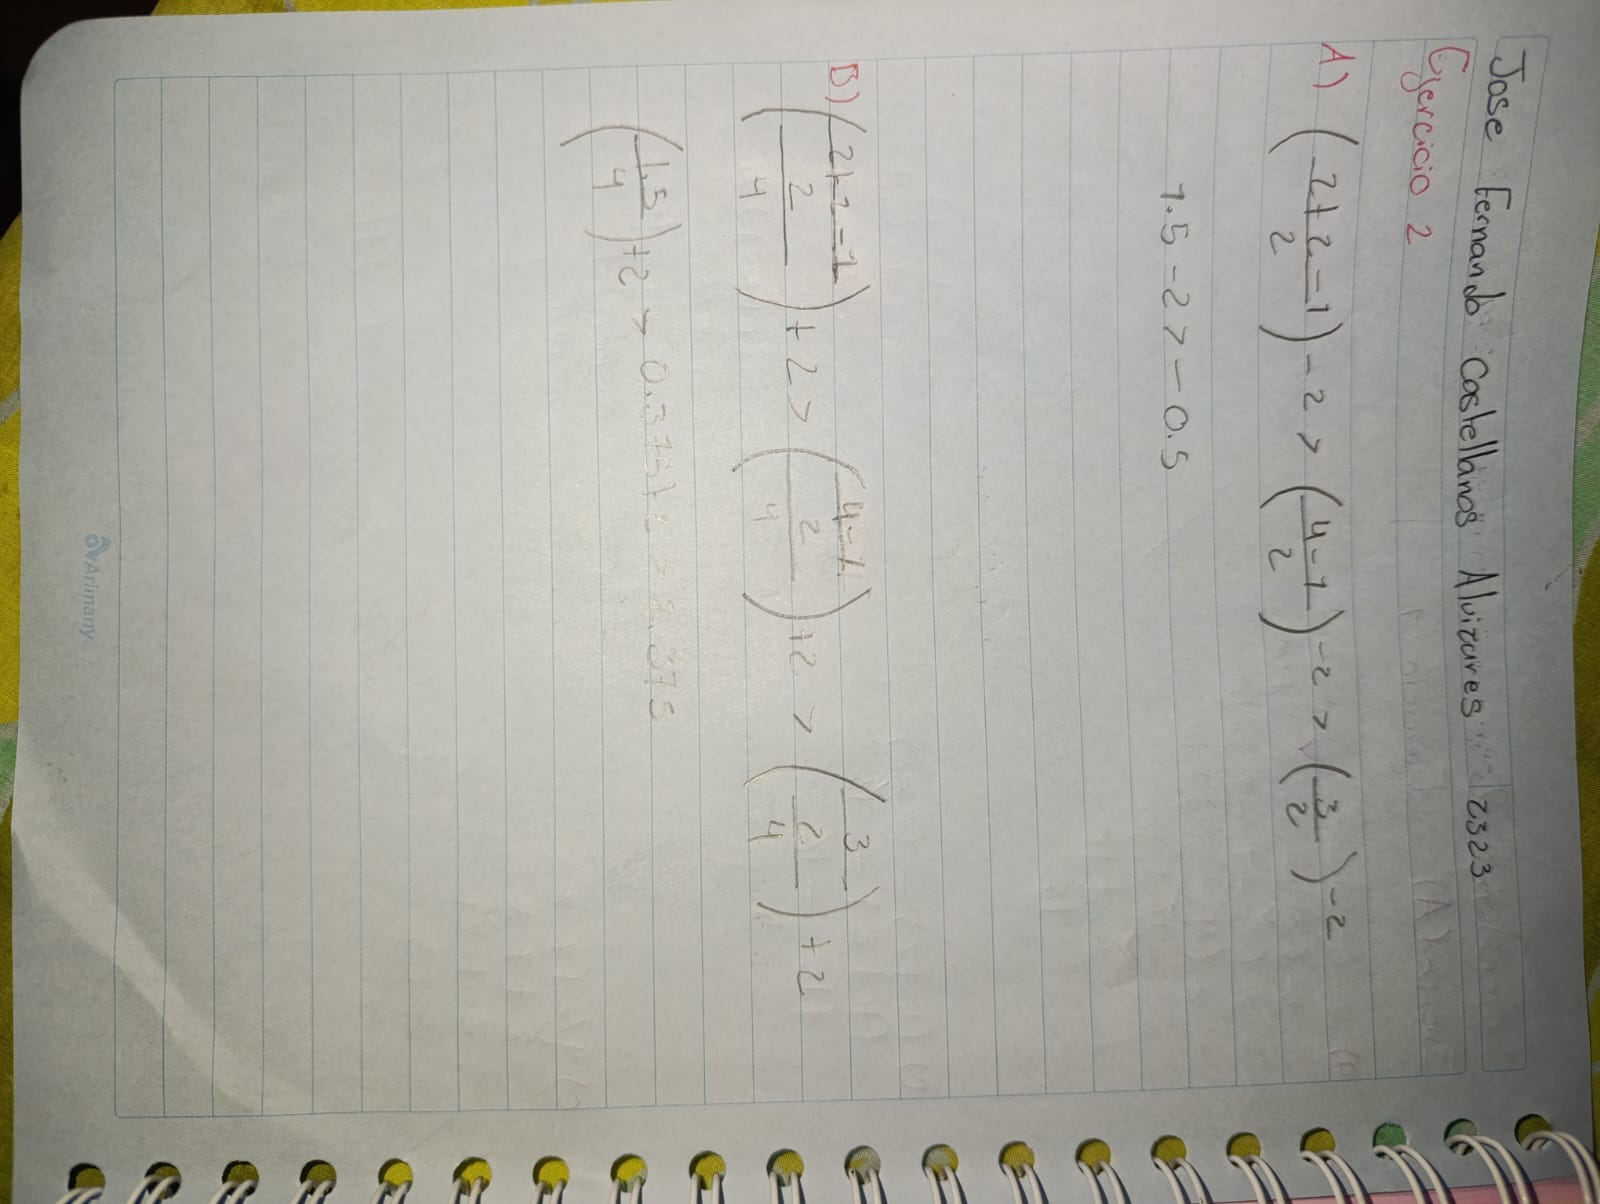 Jose Fernando Castellanos Alvizures 2323
Ejercicio 2
A) (2+2-1/2) - 2 > (4-1/2) - 2 > (3/2) - 2
1.5 - 2 > - 0.5
B) ((2+2-1/2)/4) + 2 > ((4-1/2)/4) + 2 > ((3/2)/4) + 2
(1.5/4) + 2 > 0.375 + 2 > 2.375
Arimany